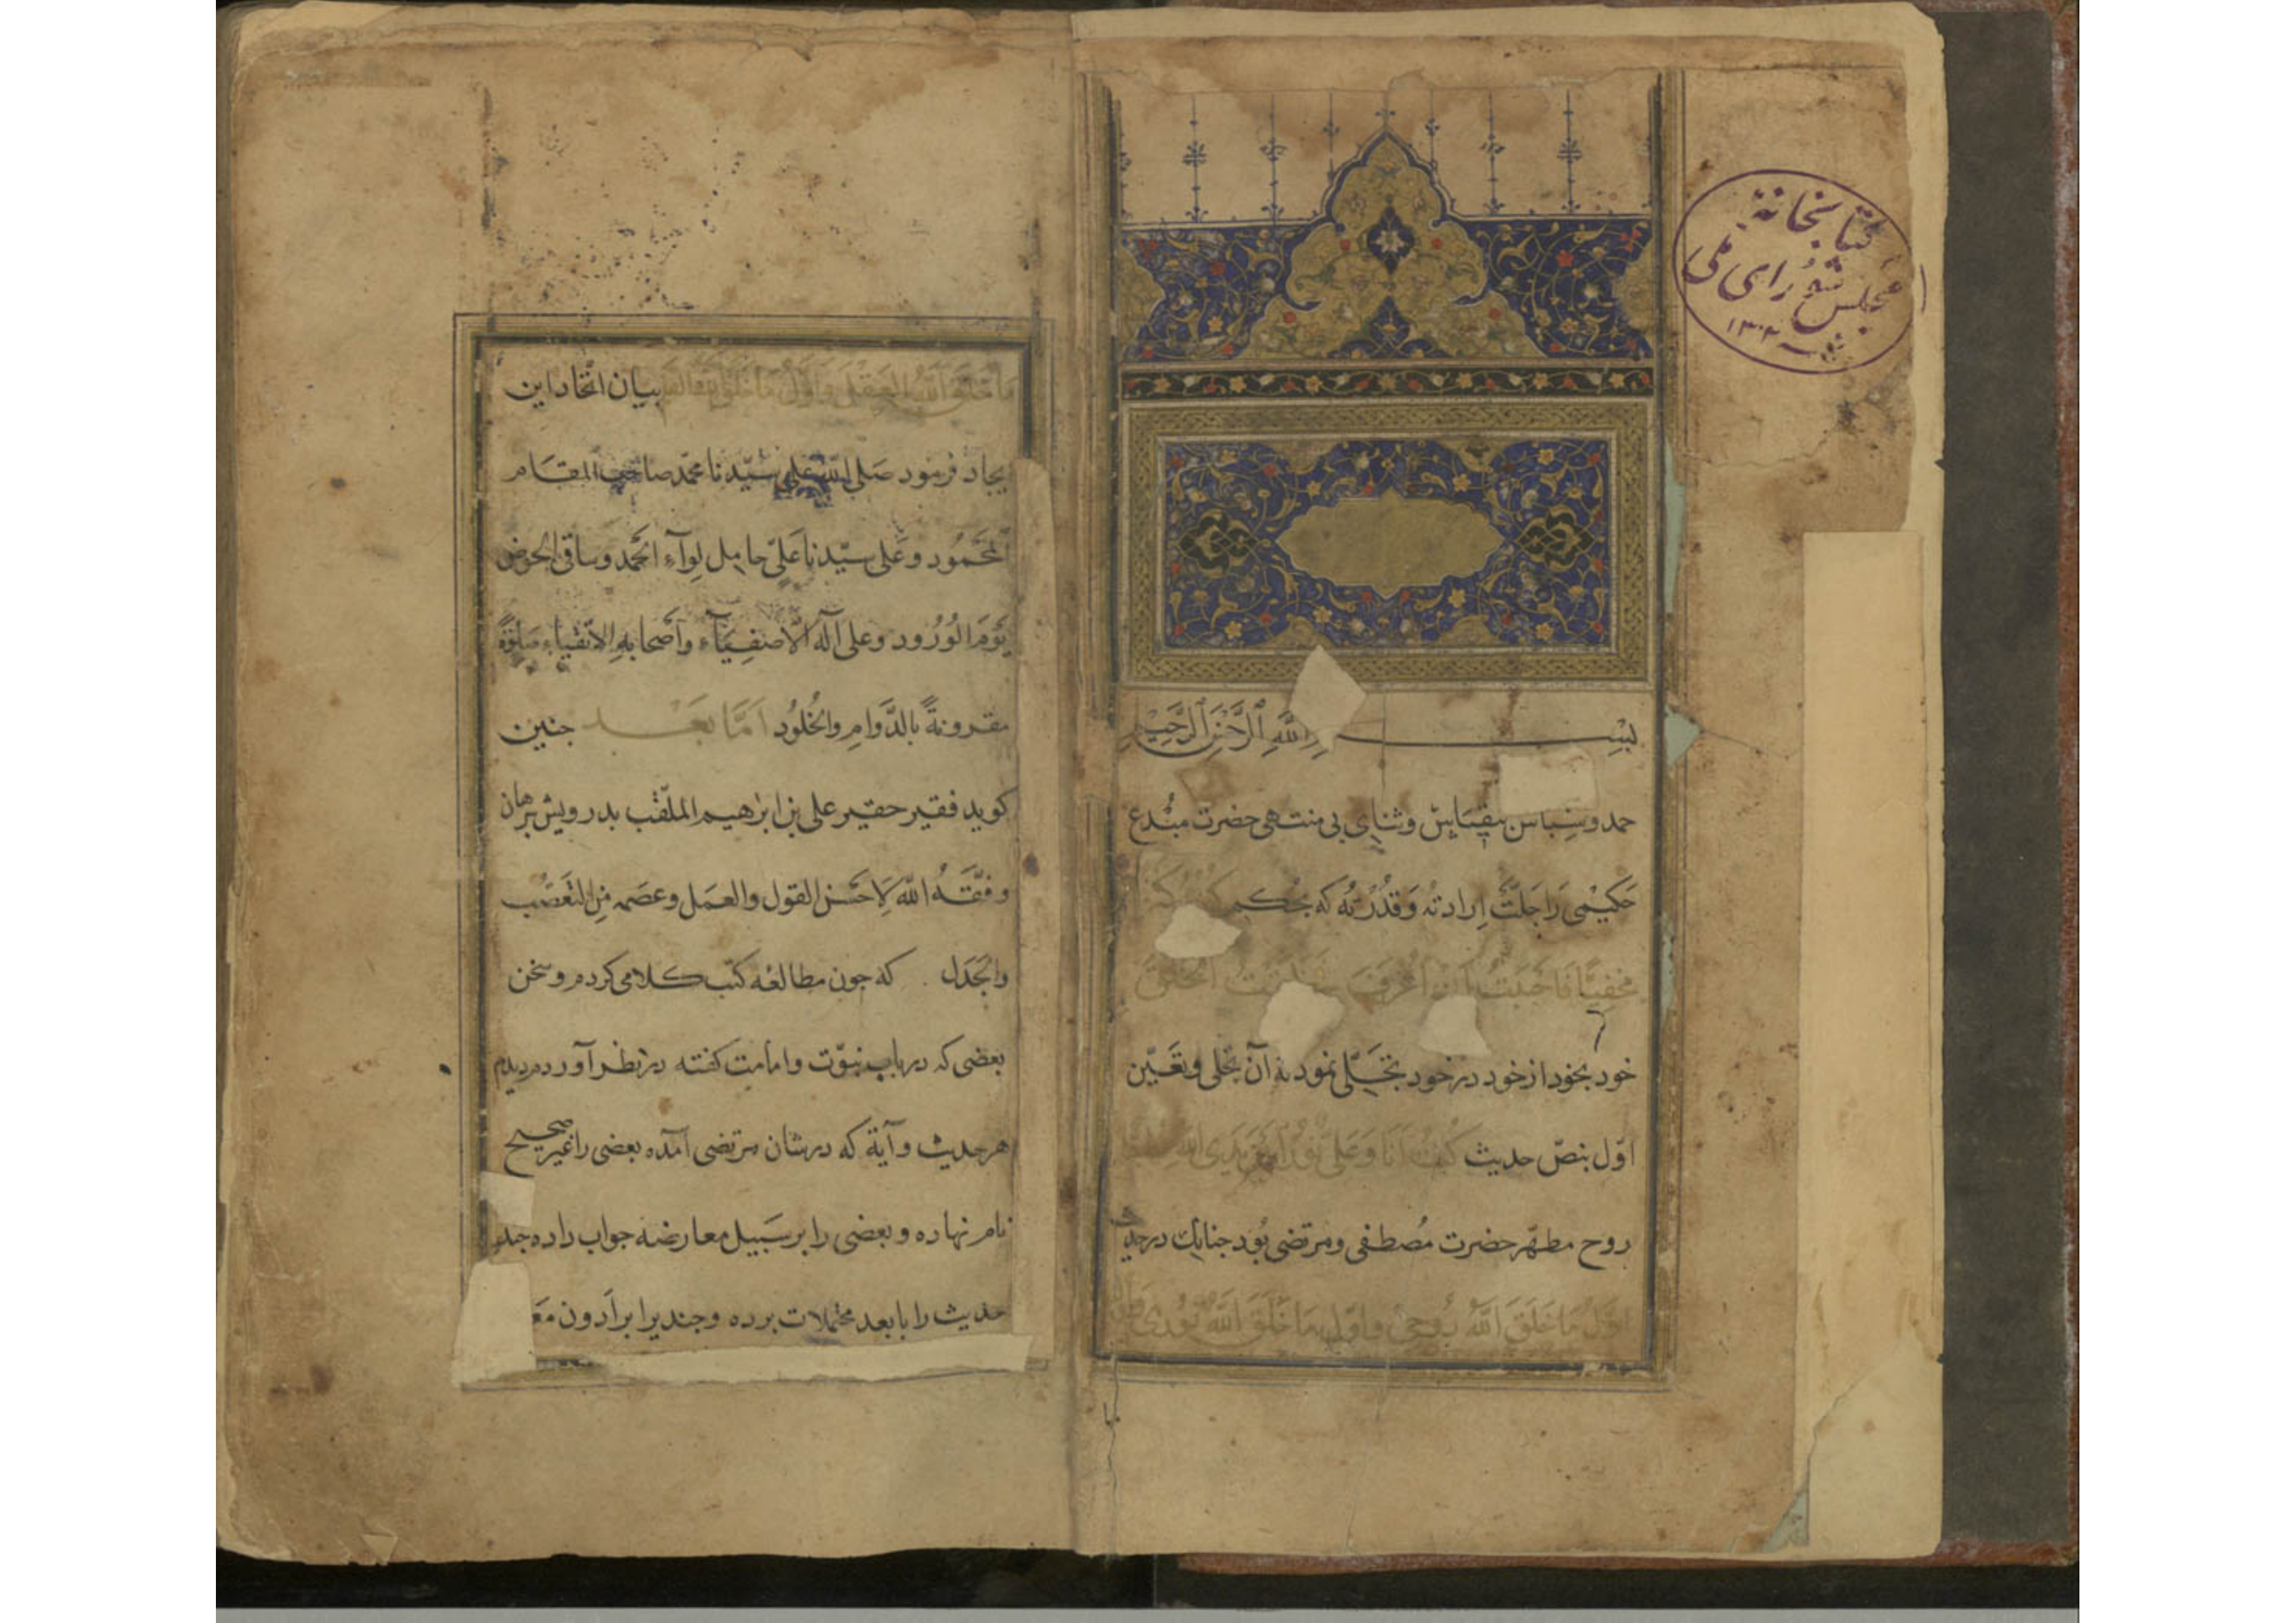 كتابخانهٔ
مجلس شورای ملی
۱۳۰۲
بسم الله الرحمن الرحيم
حمد و سپاس بیقیاس و ثنای بی منتهی حضرت مبدع
حکیمی را جلّت إرادته و قدرته که بحکم كنت كنزا
مخفيّا فاحببت أن اعرف فخلقت الخلق
خود بخود از خود در خود تجلّی نمود به آن تجلی و تعیّن
اوّل بنصّ حدیث كنت أنا وعلي نورا بين يدي الله
روح مطهّر حضرت مصطفی و مرتضی بود جنانك در حدیث
اوّل ما خلق الله روحي و اوّل ما خلق الله نوري
ما خلق الله العقل و اول ما خلق الله القلم بیان اتحاد این
یجاد فرمود صلى الله على سيّدنا محمّد صاحب المقام
المحمود وعلى سيّدنا عليّ حامل لوآء الحمد وساقي الحوض
يوم الورود وعلى آله الأصفيآء وأصحابه الأتقياء صلوة
مقرونةً بالدّوام والخلود امّا بعد جنین
كوید فقیر حقیر علی بن ابراهیم الملقّب بدرویش برهان
وفّقه الله لاحسن القول والعمل وعصمه من التعصّب
والجدل که جون مطالعه کتب کلامی کردم و سخن
بعضی که در باب نبوّت و امامت کفته در نظر آوردم دیدم
هر حدیث و آیة که در شان مرتضی آمده بعضی را غیر صحیح
نام نهاده و بعضی را بر سبیل معارضه جواب داده جند
حدیث را بابعد محتملات برده و جندیرا برادون